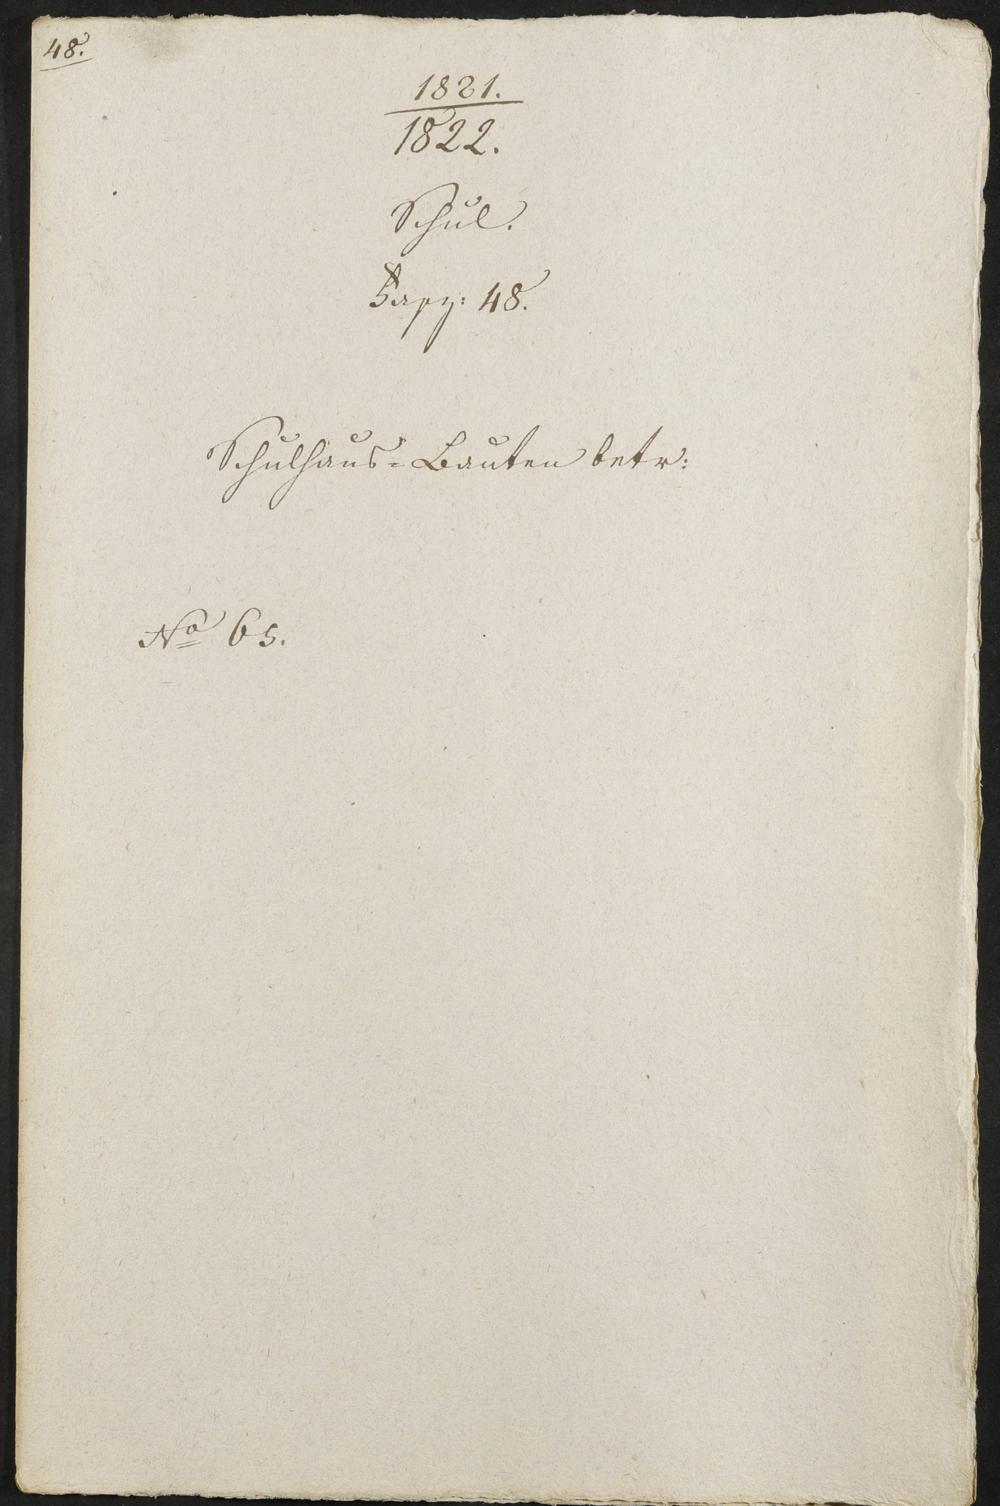 48.
1821.
1822.
Schul.
Fasz: 48.
Schulhaus-Bauten betr:
No 65.